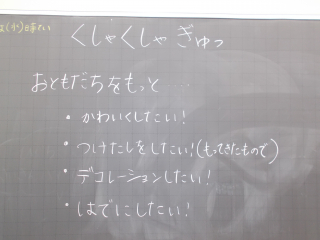 くしゃくしゃ ぎゅっ
おともだちをもっと‥‥
• かわいくしたい!
• つけたしをしたい!(もってきたもので)
• デコレーションしたい!
• はでにしたい!